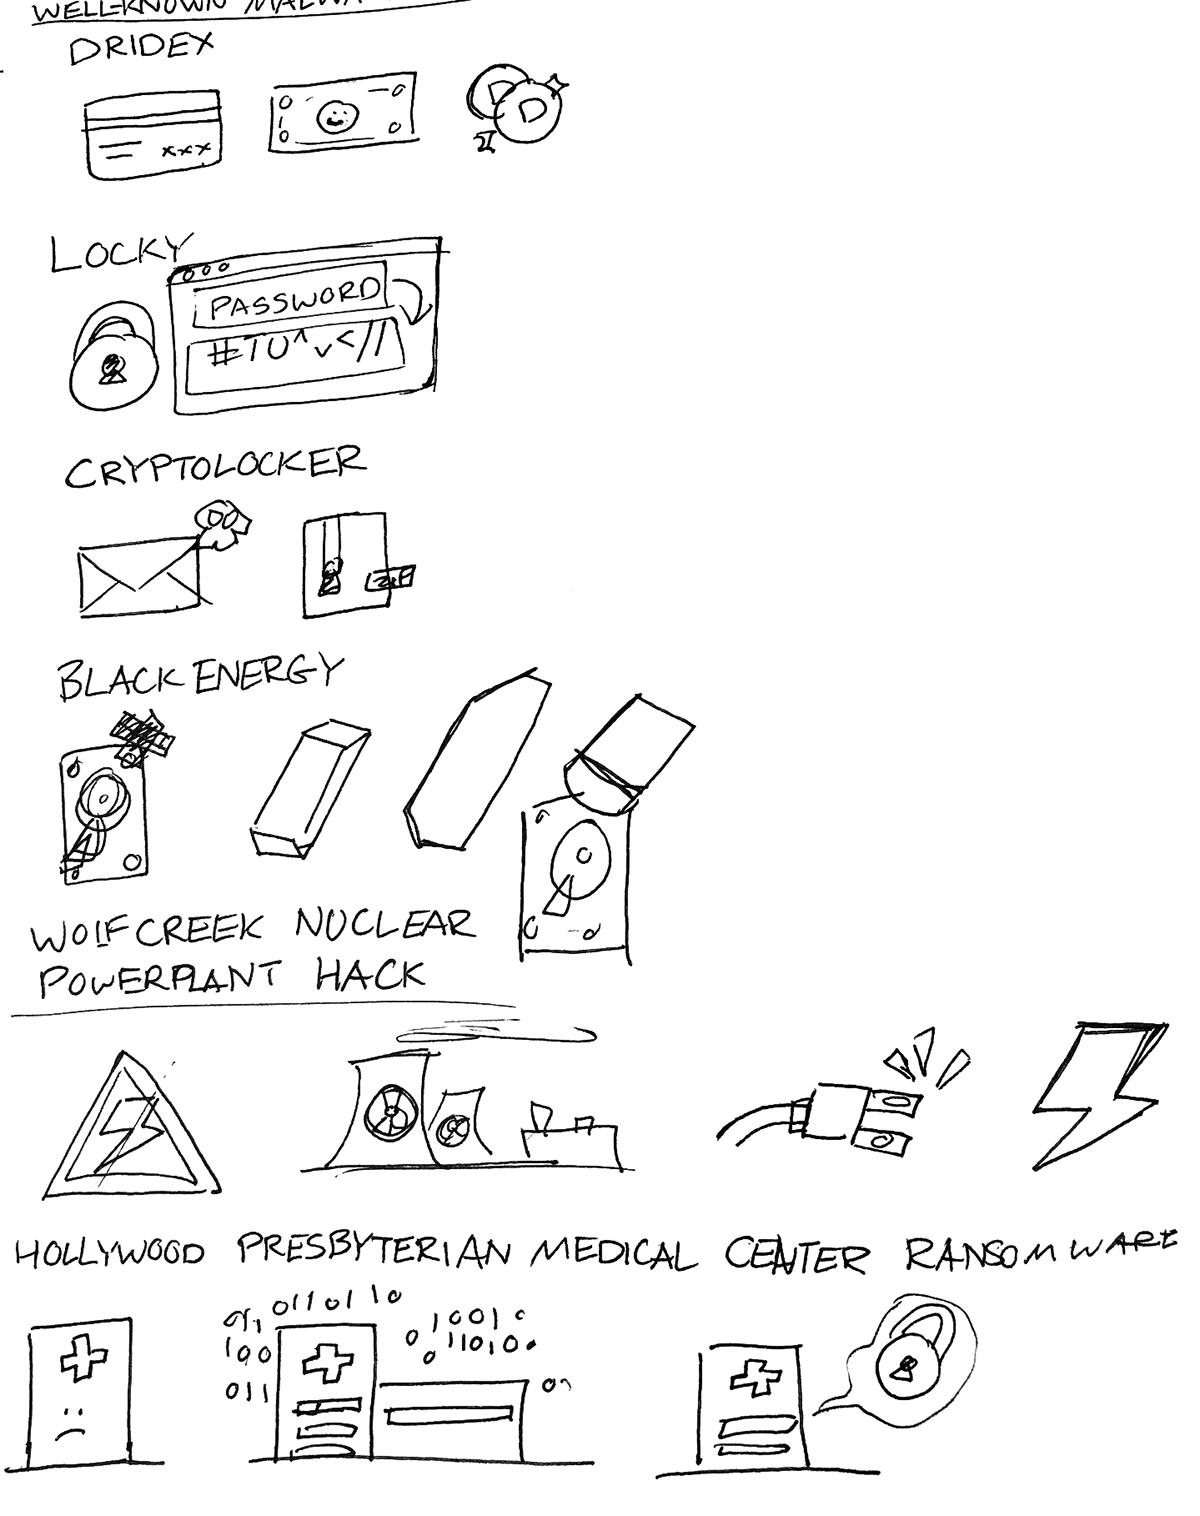 WELL-KNOWN
DRIDEX
xxx
D D
LOCKY
PASSWORD
#TU^v<//
CRYPTOLOCKER
BLACKENERGY
WOLFCREEK NUCLEAR
POWERPLANT HACK
HOLLYWOOD PRESBYTERIAN MEDICAL CENTER RANSOMWARE
0110110
10010
100
011010
011